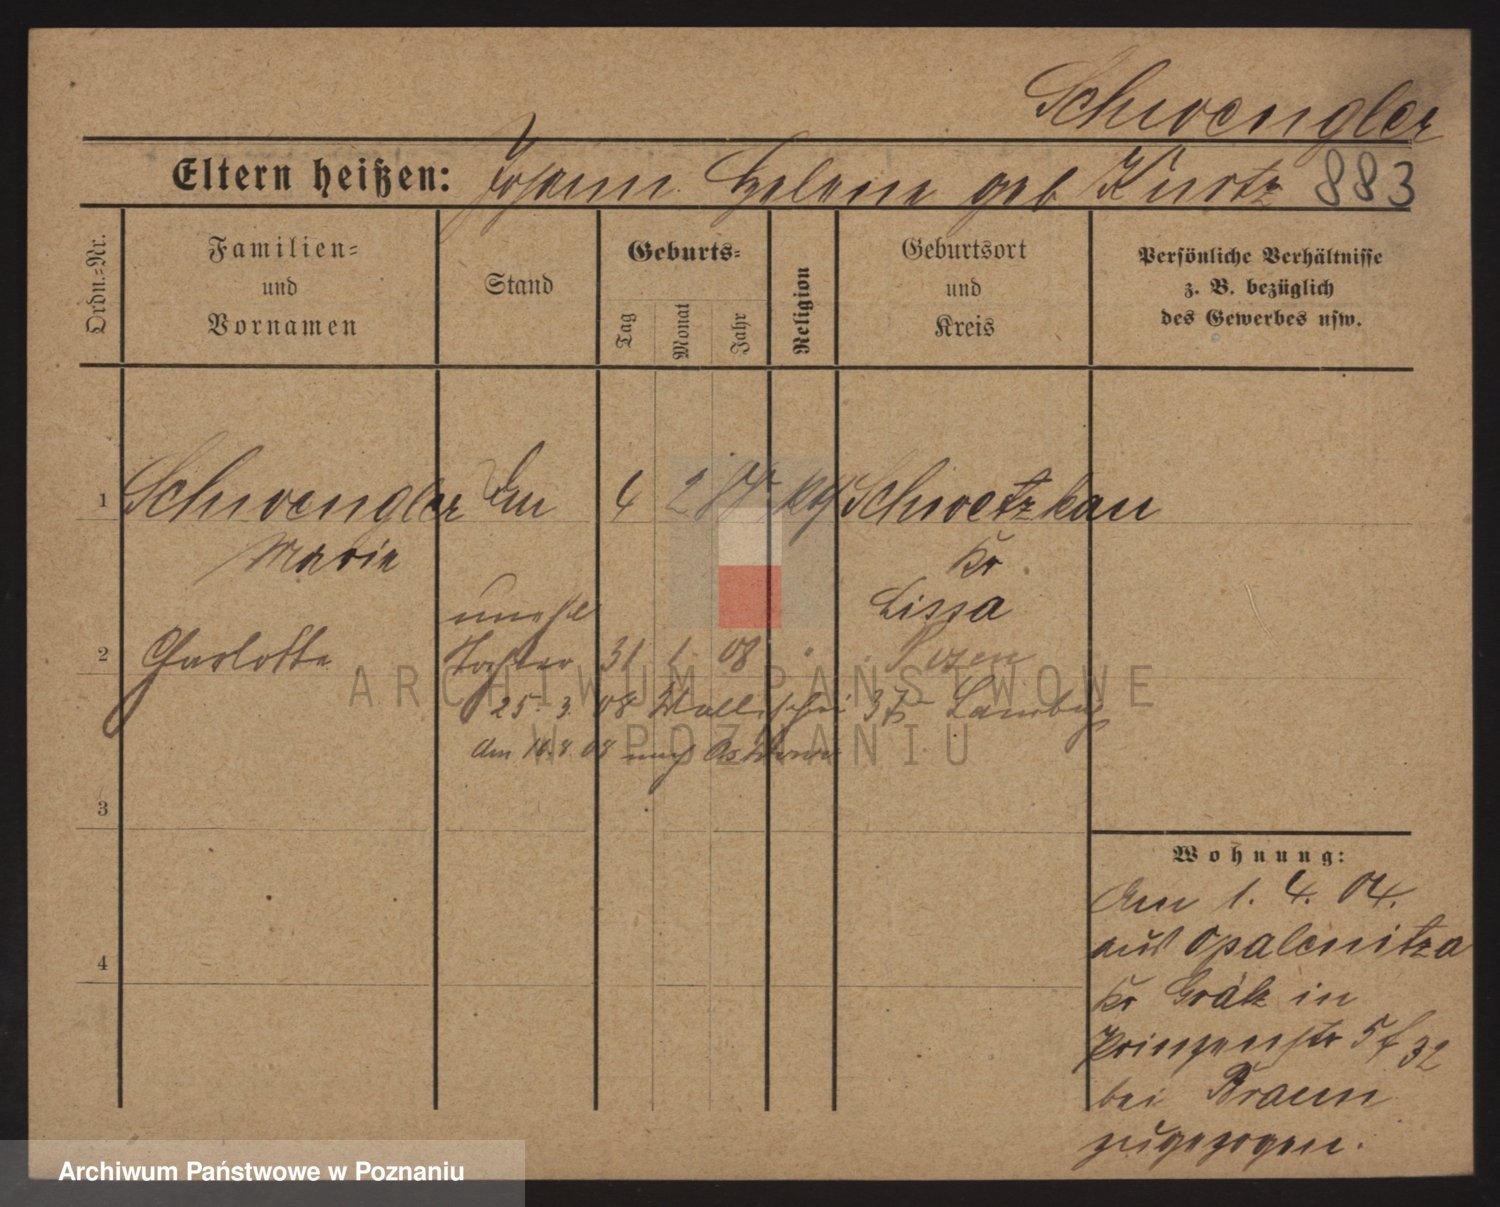 Schwengler
Eltern heißen: Johann Helene geb Kurtz 883
Ordn.=Nr.
Familien=
und
Vornamen
Stand
Geburts=
Tag
Monat
Jahr
Religion
Geburtsort
und
Kreis
Persönliche Verhältnisse
z. B. bezüglich
des Gewerbes usw.
1 Schwengler 4 2 Schwetzkau
Marie Kr
Lissa
unehl
2 Charlotte Tochter 31 1 08 Posen
25. 3. 08 Wallischei
Am 08 nach
3
4
Wohnung:
Am 1. 4. 04.
aus Opalenitza
Kr Grätz in
Prinzenstr 32
bei Braun
zugezogen.
ARCHIWUM PAŃSTWOWE
W POZNANIU
Archiwum Państwowe w Poznaniu